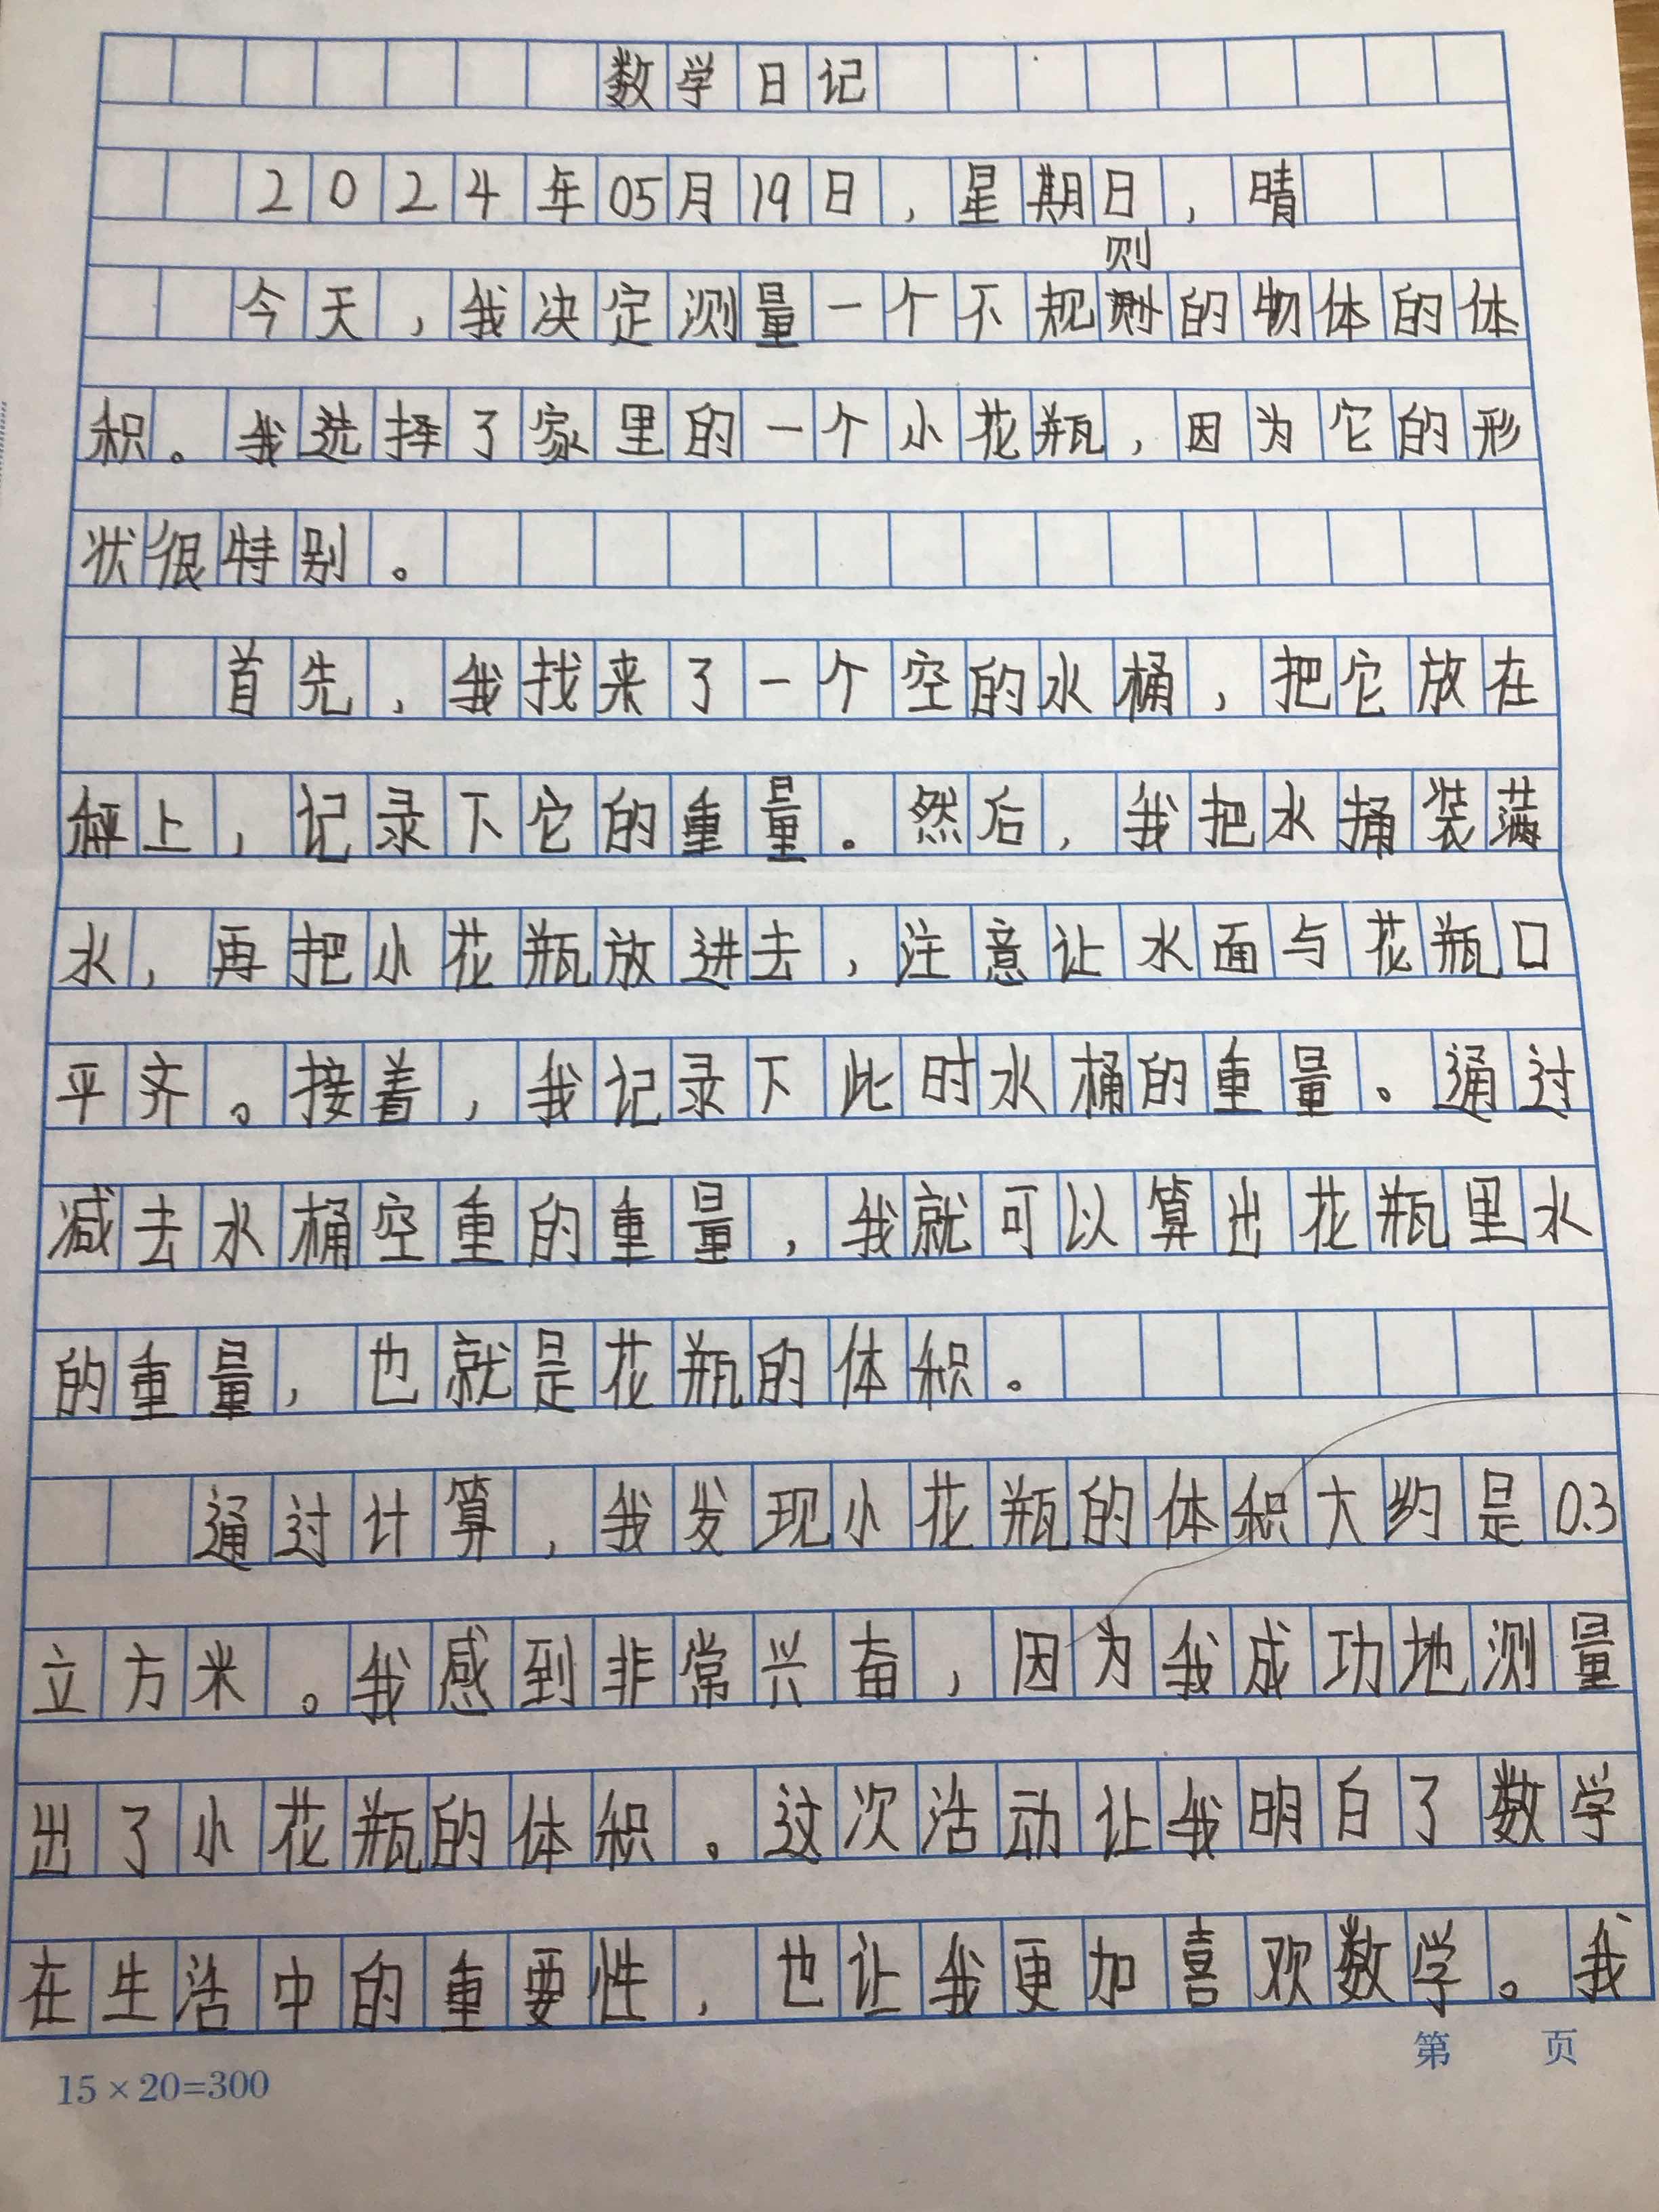 数学日记
2024年05月19日，星期日，晴
则
今天，我决定测量一个不规的物体的体
积。我选择了家里的一个小花瓶，因为它的形
状很特别。
首先，我找来了一个空的水桶，把它放在
秤上，记录下它的重量。然后，我把水桶装满
水，再把小花瓶放进去，注意让水面与花瓶口
平齐。接着，我记录下此时水桶的重量。通过
减去水桶空重的重量，我就可以算出花瓶里水
的重量，也就是花瓶的体积。
通过计算，我发现小花瓶的体积大约是0.3
立方米。我感到非常兴奋，因为我成功地测量
出了小花瓶的体积。这次活动让我明白了数学
在生活中的重要性，也让我更加喜欢数学。我
第 页
15×20=300